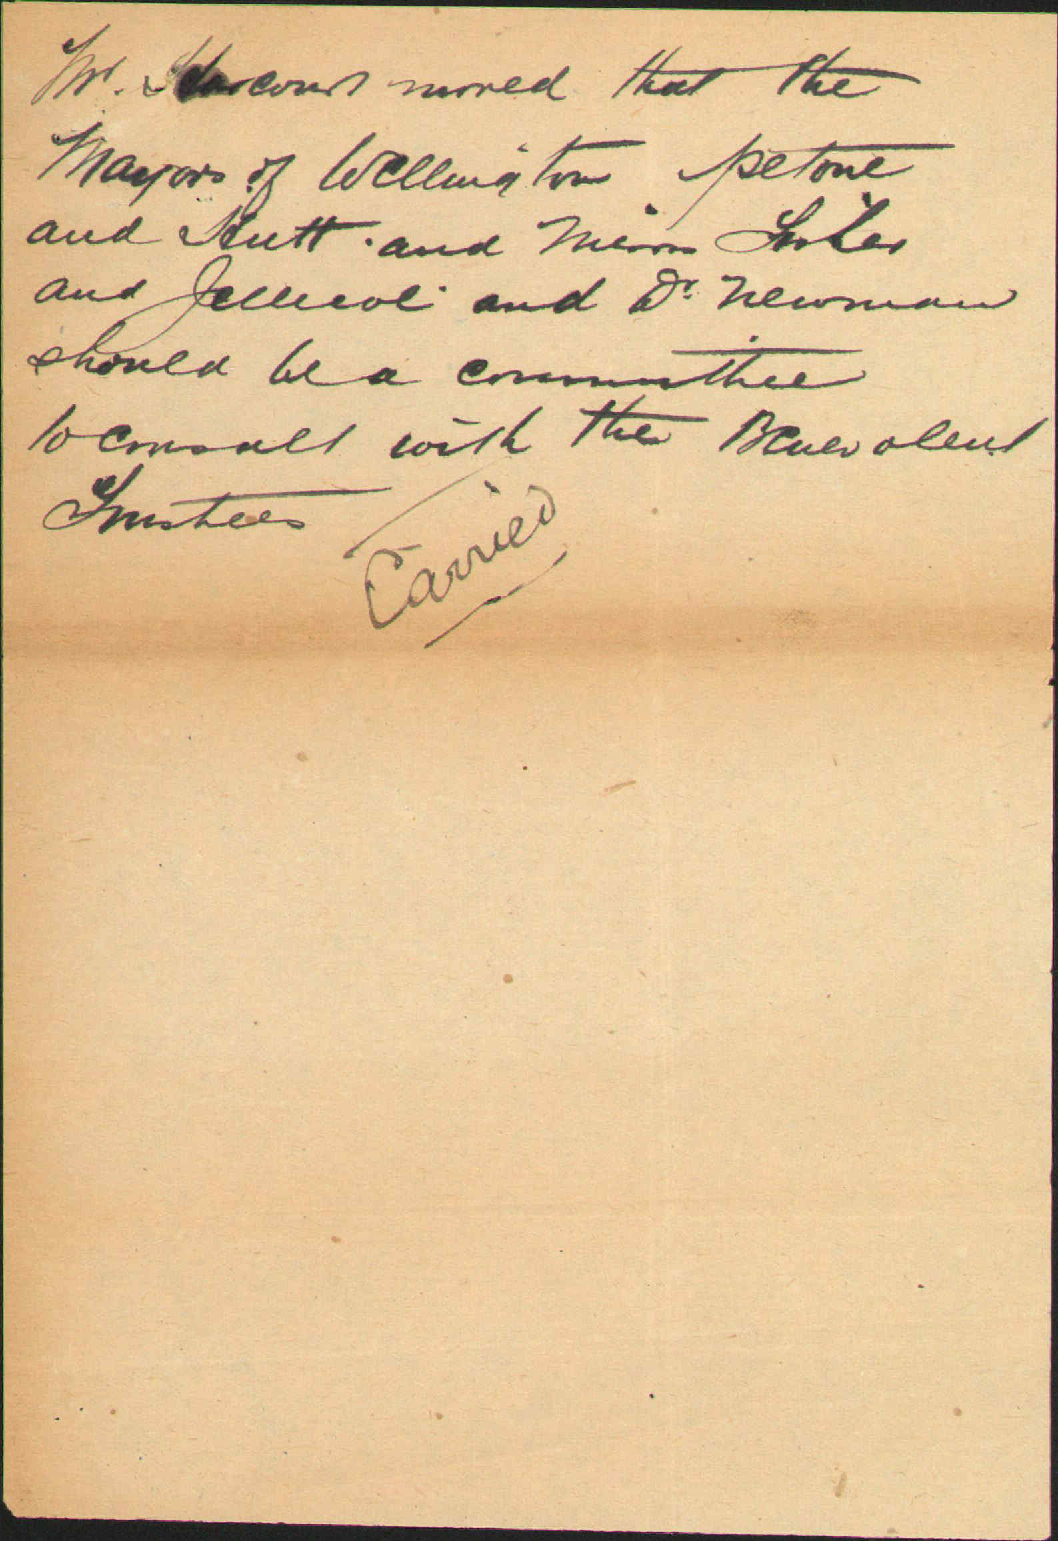 Mr. Harcourt moved that the
Mayors of Wellington petone
and Hutt. and Messrs
and Jellicoe and Dr. Newman
should be a committee
to consult with the Benevolent
Trustees
Carried